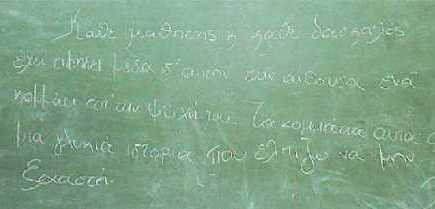 Καθε μαθητης κ καθε δασκαλος
εχει αφησει μεσα σ' αυτην την αιθουσα ενα
κομματι απ' την ψυχη του. Τα κομματια αυτα
μια γλυκιά ιστορία που ελπιζω να μην
ξεχαστει.